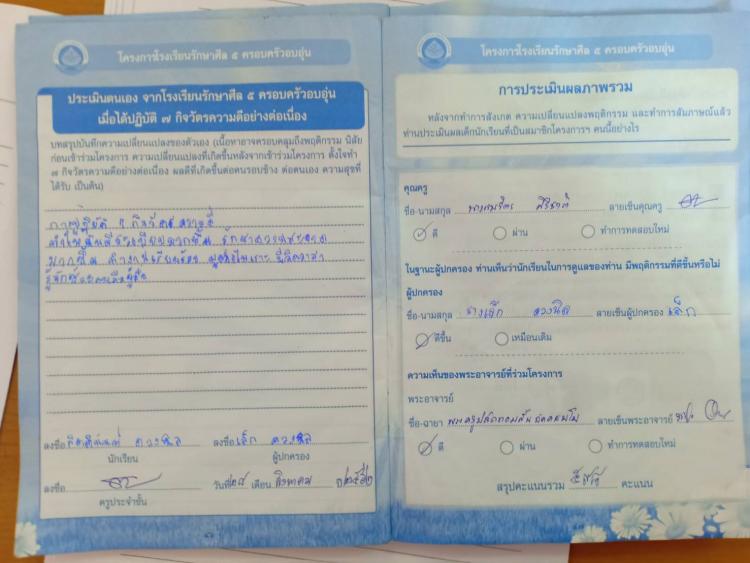 โครงการโรงเรียนรักษาศีล ๕ ครอบครัวอบอุ่น
ประเมินตนเอง จากโรงเรียนรักษาศีล ๕ ครอบครัวอบอุ่น
เมื่อได้ปฏิบัติ ๗ กิจวัตรความดีอย่างต่อเนื่อง
บทสรุปบันทึกความเปลี่ยนแปลงของตัวเอง (เนื้อหาอาจครอบคลุมถึงพฤติกรรม นิสัย
ก่อนเข้าร่วมโครงการ ความเปลี่ยนแปลงที่เกิดขึ้นหลังจากเข้าร่วมโครงการ ตั้งใจทำ
๗ กิจวัตรความดีอย่างต่อเนื่อง ผลดีที่เกิดขึ้นต่อคนรอบข้าง ต่อตนเอง ความสุขที่
ได้รับ เป็นต้น)
การปฏิบัติ ๗ กิจวัตรความดี
ทำให้ฉันมีระเบียบมากขึ้น รักษาความสะอาด
มากขึ้น
ลงชื่อ ลงชื่อ เล็ก ดวงนิล
นักเรียน ผู้ปกครอง
ลงชื่อ วันที่ ๒๘ เดือน สิงหาคม
ครูประจำชั้น
โครงการโรงเรียนรักษาศีล ๕ ครอบครัวอบอุ่น
การประเมินผลภาพรวม
หลังจากทำการสังเกต ความเปลี่ยนแปลงพฤติกรรม และทำการสัมภาษณ์แล้ว
ท่านประเมินผลเด็กนักเรียนที่เป็นสมาชิกโครงการฯ คนนี้อย่างไร
คุณครู
ชื่อ-นามสกุล ลายเซ็นคุณครู
ดี ผ่าน ทำการทดสอบใหม่
ในฐานะผู้ปกครอง ท่านเห็นว่านักเรียนในการดูแลของท่าน มีพฤติกรรมที่ดีขึ้นหรือไม่
ผู้ปกครอง
ชื่อ-นามสกุล นางเล็ก ดวงนิล ลายเซ็นผู้ปกครอง เล็ก
ดีขึ้น เหมือนเดิม
ความเห็นของพระอาจารย์ที่ร่วมโครงการ
พระอาจารย์
ชื่อ-ฉายา ลายเซ็นพระอาจารย์
ดี ผ่าน ทำการทดสอบใหม่
สรุปคะแนนรวม คะแนน